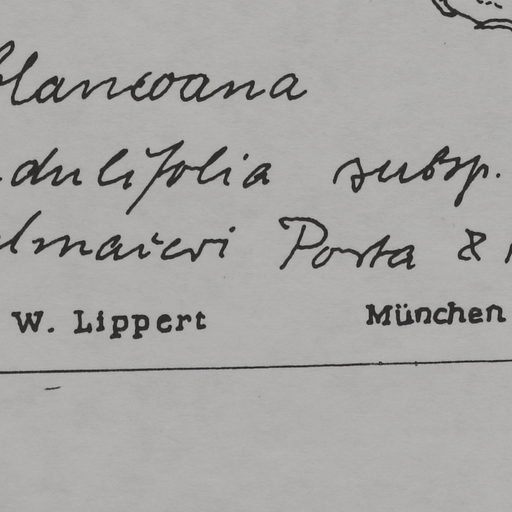 blancoana
dulifolia subsp.
lmaieri Porta &
W. Lippert München